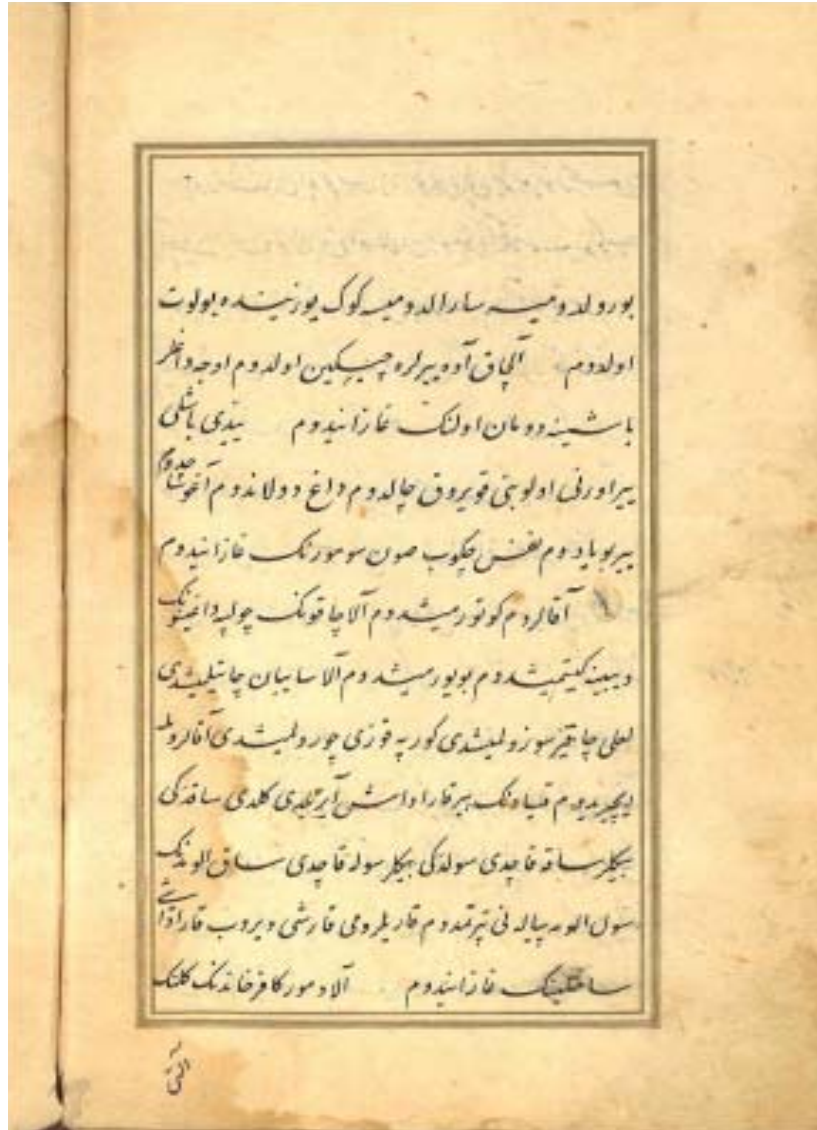 بورولدومیسه سارالدومیسه کوک یوزنینده بولوت
اولدوم آلچاق آده ییرلره چیسکین اولدوم اوجه داغلر
باشینه دومان اولنک غازانیدوم یتدی باشلی
ییر اورنی اولوبتی قویروق چالدوم داغ دولاندوم آغو ساچدوم
ییر بویادوم نفس چکوب صون سومورنک غازانیدوم
آقالروم کوتورمیشدوم آلاچاقونک چولپه داغینونک
دیبینه کیتمیشدوم بویورمیشدوم آلا سایبان چاتیلمیشدی
لعلی چاقیر سوزولمیشدی کورپه قوزی چورولمیشدی آقالروملـه
ایچیریدوم قیاونک بیر قارا داش آیریلدی کلدی ساقدکی
بیکلر ساقه قاچدی سولدکی بیکلر سوله قاچدی ساق الومدنک
سول الومه پیاله نی تپرتمدوم قاریلرومی قارشی ویروب قارا داشی
ساخلینک غازانیدوم آلا دمور کافر خاندنک کلنک